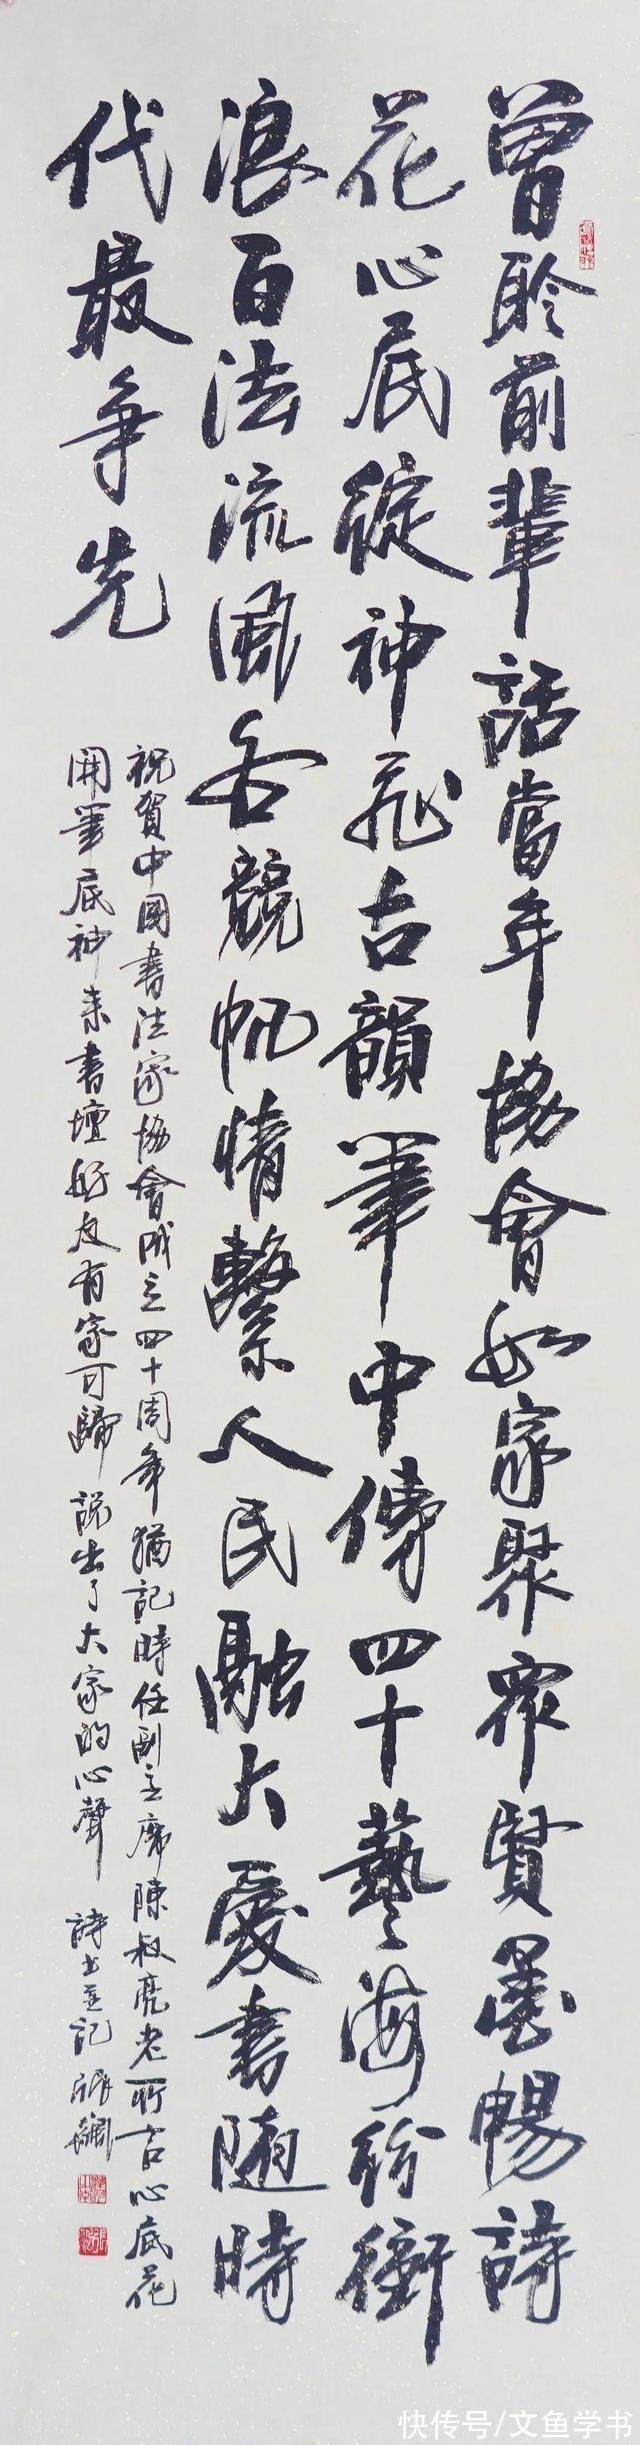 曾聆前輩話當年協會如家聚眾賢墨暢詩
花心底綻神飛古韻筆中傳四十藝海紛衝
浪百法流風各競帆情繫人民融大愛書隨時
代最爭先
祝賀中國書法家協會成立四十周年猶記時任副主席陳叔亮老所言心底花
開筆底神來書壇好友有家可歸說出了大家的心聲 詩书並記 張飆
快传号/文鱼学书